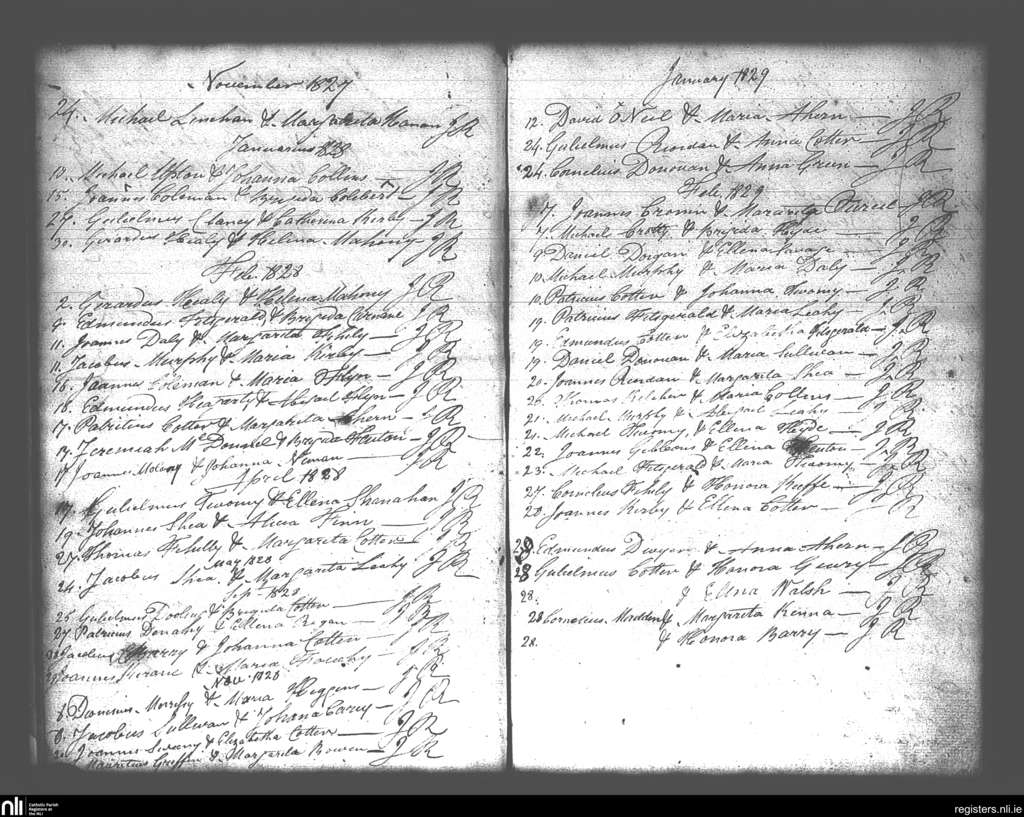 November 1827
24. Michael Linehan & Margarita Hanan JR
Januarius 1828
10. Michael Upton & Johanna Collins — JR
15. Joannes Coleman & Brigida Colbert — JR
29. Gulielmus Clancy & Catherina Kirby — JR
30. Gerardus Healy & Helina Mahony — JR
Feb. 1828
2. Gerardus Healy & Helena Mahony JR
9. Edmundus Fitzgerald & Brigida JR
11. Joannes Daly & Margarita Fehily — JR
11. Jacobus Murphy & Maria Kirby — JR
16. Joannes Coleman & Maria Flyn — JR
16. Edmundus Heaferty & Abigail Flyn — JR
17. Patritius Cotter & Margarita Ahern — JR
17. Jeremiah Mc Donnel & Brigida Stanton — JR
17. Joannes Molony & Johanna Neenan — JR
April 1828
17. Gulielmus Twomy & Ellena Shanahan JR
19. Johannes Shea & Alicia Finn — JR
27. Thomas Fehilly & Margarita Cotter — JR
May 1828
24. Jacobus Shea & Margarita Leahy. JR
Sep. 1828
25 Gulielmus & Brigida Cotter — JR
27 Patricius Donahy & Ellena Regan — JR
Jacobus Barry & Johanna Cotter — JR
Joannes & Maria JR
Nov. 1828
8. Dionisius Morrissy & Maria Higgins — JR
8. Jacobus Sullivan & Johana Carey — JR
Joannes & Elizabetha Cotter — JR
Mauritius Griffin & Margarita Bowen — JR
January 1829
12. David O'Neil & Maria Ahern — JR
24. Gulielmus Riordan & Anna Cotter — JR
24. Cornelius Donovan & Anna Green — JR
Feb. 1829
7. Joannes Cronin & Margarita JR
7. Michael Crotty & Brigida Hyde — JR
9 Daniel Dorgan & Ellena Savage — JR
10. Michael Murphy & Maria Daly — JR
10. Patricius Cotter & Johanna Twomy — JR
19. Patricius Fitzgerald & Maria Leahy — JR
19. Edmundus Cotter & Elizabetha Fitzgerald — JR
19. Daniel Donovan & Maria Sullivan — JR
20. Joannes Riordan & Margarita Shea — JR
20. Thomas Keleher & Maria Collins — JR
21. Michael Murphy & Abigail Leahy — JR
21. Michael Twomy, & Ellena Hyde — JR
22. Joannes Gibbons & Ellena Stanton — JR
23. Michael Fitzgerald & Maria Twomy — JR
27. Cornelius Fehily & Honora Keeffe — JR
28. Joannes Kirby & Ellena Cotter — JR
28 Edmundus Dwyer & Anna Ahern — JR
28 Gulielmus Cotter & Honora Geary — JR
28. & Ellna Walsh — JR
28 Cornelius Madden & Margarita Kenna — JR
28. & Honora Barry — JR
nli
Catholic Parish
Registers at
the NLI
registers.nli.ie